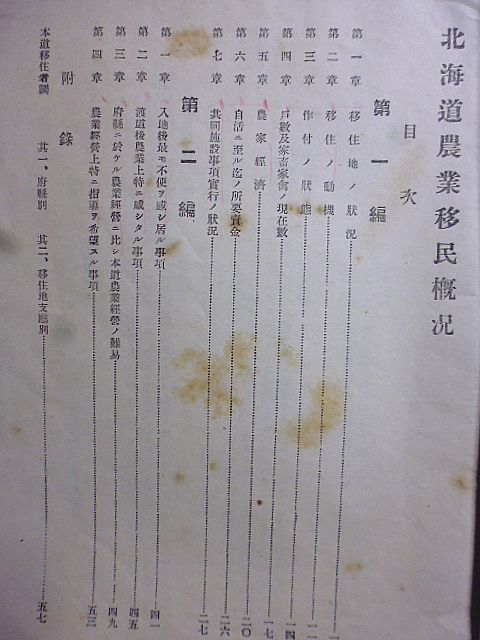 北海道農業移民概況
目次
第一編
第一章 移住地ノ狀況 一
第二章 移住ノ動機
第三章 作付ノ狀態
第四章 戶數及家畜家禽ノ現在數 一四
第五章 農家經濟 一七
第六章 自活ニ至ル迄ノ所要資金 二〇
第七章 共同施設事項實行ノ狀況 二七
第二編
第一章 入地後最モ不便ヲ感シ居ル事項 四一
第二章 渡道後農業上特ニ感シタル事項 四五
第三章 府縣ニ於ケル農業經營ニ比シ本道農業經營ノ難易 四九
第四章 農業經營上特ニ指導ヲ希望スル事項 五三
附錄
本道移住者調 其一、府縣別 其二、移住地支廳別 五七